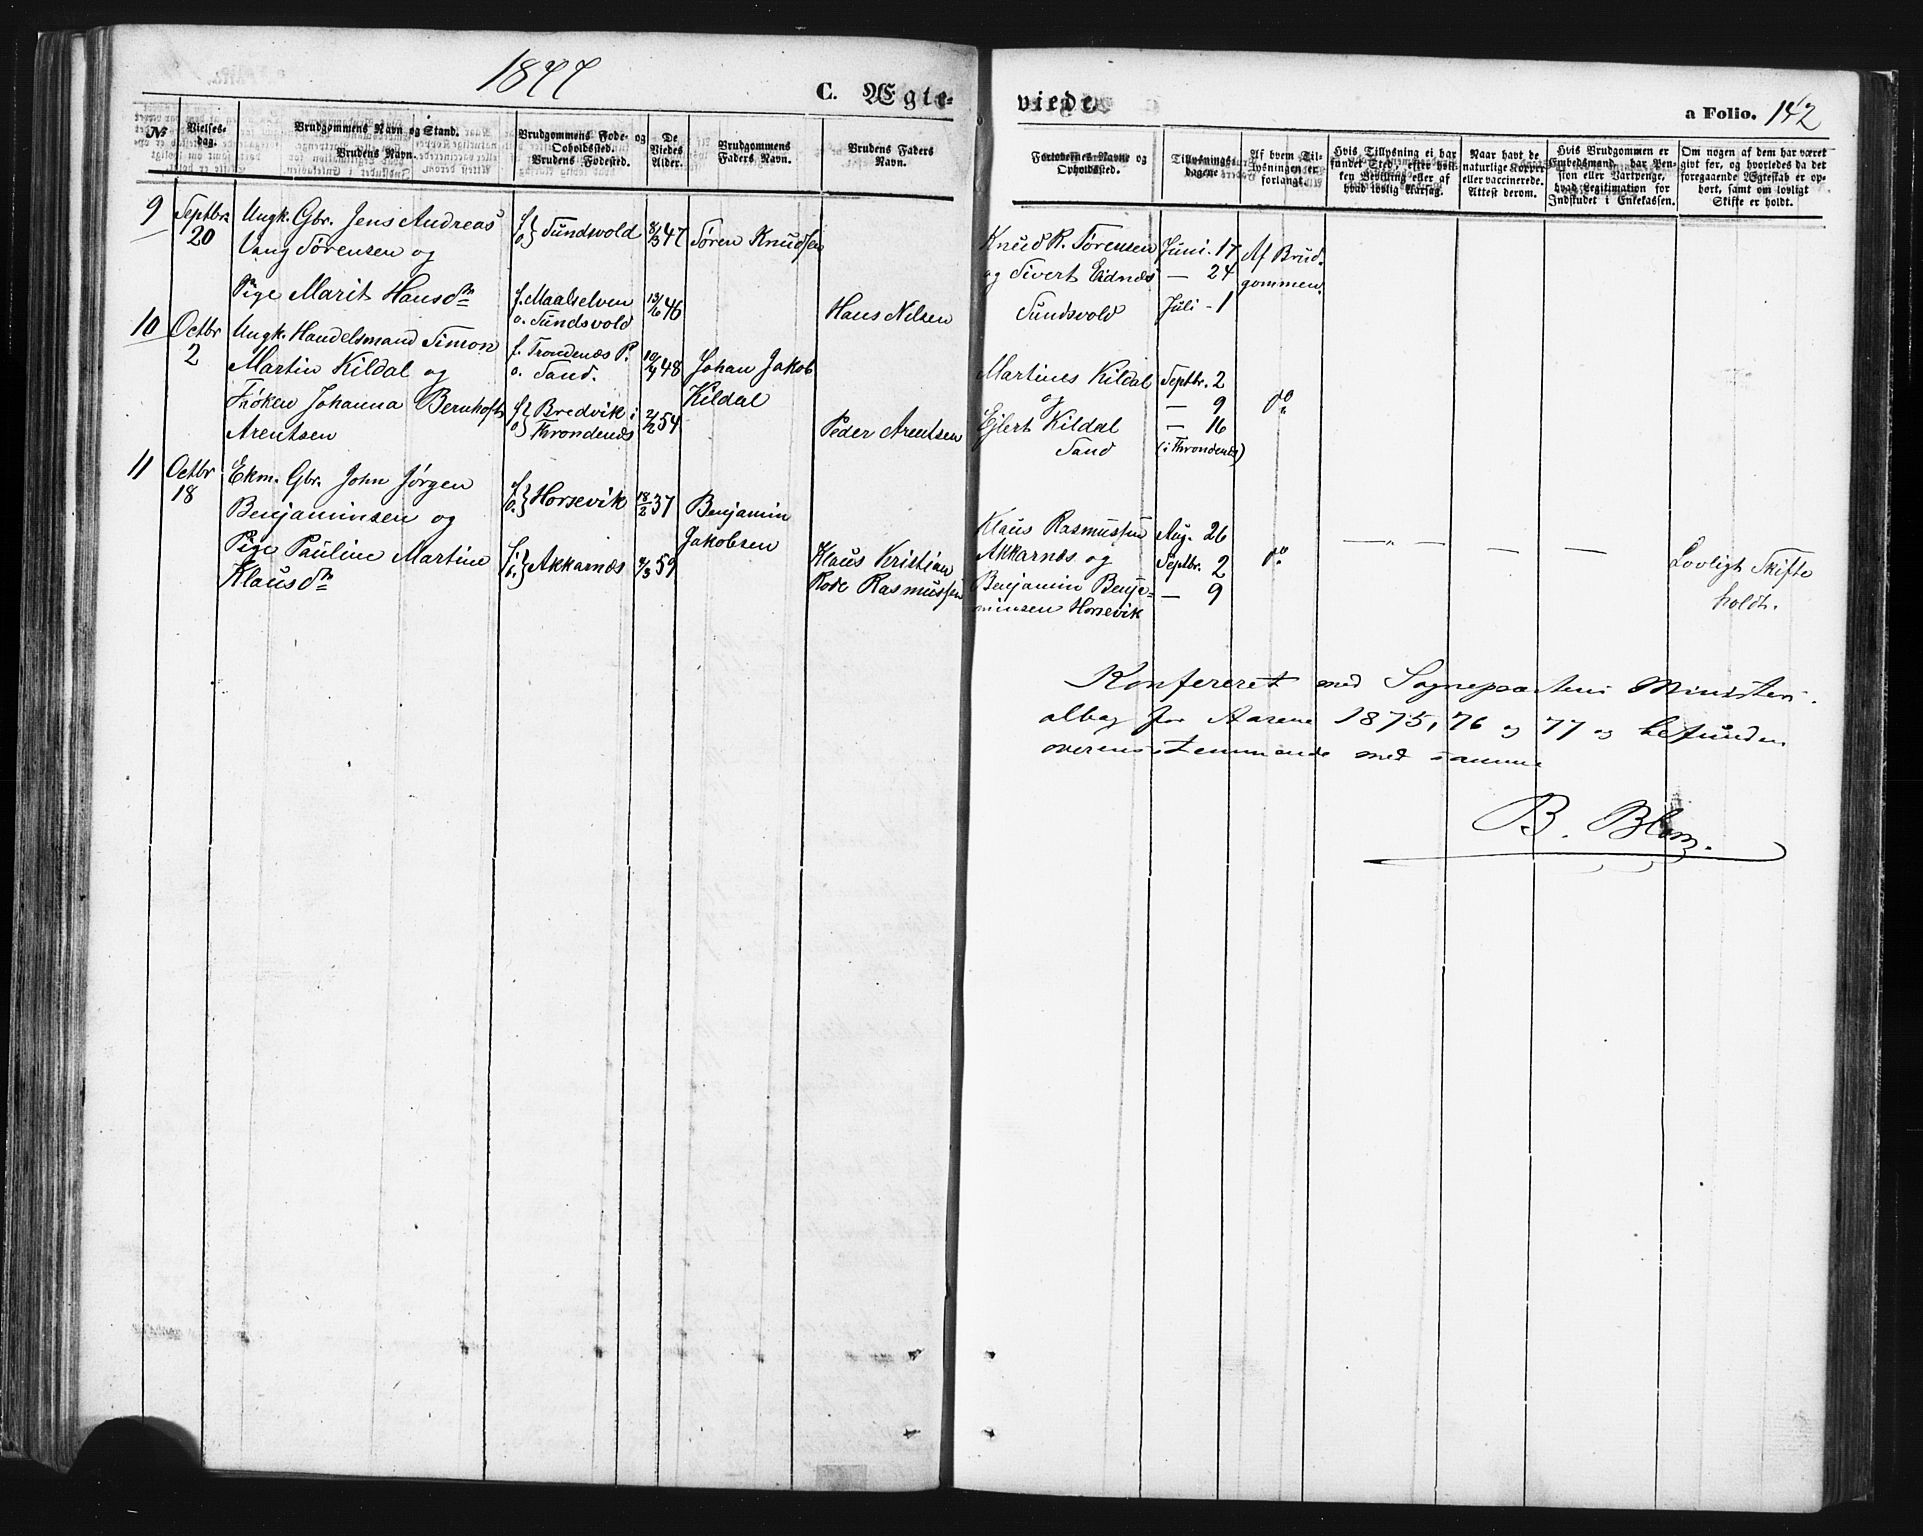 1877
C. Ægte-
viede.
a Folio. 142
№
Vielses-
dag.
Brudgommens Navn og Stand.
Brudens Navn.
Brudgommens Føde- og
Opholdssted.
Brudens Fødested.
De
Viedes
Alder.
Brudgommens
Faders Navn.
Brudens Faders
Navn.
Forlovernes Navne og
Opholdssted.
Tillysnings-
dagene
Af hvem Til-
lysningen er
forlangt.
Hvis Tillysning ei har
fundet Sted, efter hvil-
ken Bevilling eller af
hvad lovlig Aarsag.
Naar havt de
naturlige Kopper
eller vaccinerede.
Attest derom.
Hvis Brudgommen er
Embedsmand, har Pen-
sion eller Vartpenge,
hvad Legitimation for
Indskudet i Enkekassen.
Om nogen af dem har været
gift før, og hvorledes da det
foregaaende Ægteskab er op-
hørt, samt om lovligt
Skifte er holdt.
9
Septbr.
20
Ungk. Gbr. Jens Andreas
Vang Sørensen og
Pige Marit Hansdtr
f. o. } Sundsvold
f. Maalselven
o. Sundsvold
8/3 47
13/6 46
Søren Knudsen
Hans Nilsen
Knud R. Sørensen
og Sivert Eidnæs
Sundsvold
Juni - 17
— 24
Juli - 1
Af Brud-
gommen.
10
Octbr
2
Ungk. Handelsmand Simon
Martin Kildal og
Frøken Johanna Bernhoft
Arentsen
f. Trondenæs P.
o. Sand.
f. o. } Bredvik i
Throndenæs
48
2/2 54
Johan Jakob
Kildal
Peder Arentsen
Martines Kildal
og
Ejlert Kildal
Sand
Septbr. 2
— 9
— 16
(i Throndenæs)
do
11
Octbr
18
Ekm. Gbr. John Jørgen
Benjaminsen og
Pige Pauline Martine
Klausdtr
f. o. } Horsevik
f. o. } Akkarnæs
18/2 37
9/3 59
Benjamin
Jakobsen
Klaus Kristian
Rode Rasmussen
Klaus Rasmussen
Akkarnæs og
Benjamin Benja-
minsen Horsevik
Aug. 26
Septbr. 2
— 9
do
— „ — — — —
Lovligt Skifte
holdt.
Konfereret med Sognepræstens Ministeri-
albog for Aarene 1875, 76 og 77 og befunden
overensstemmende med samme
B. Blom.